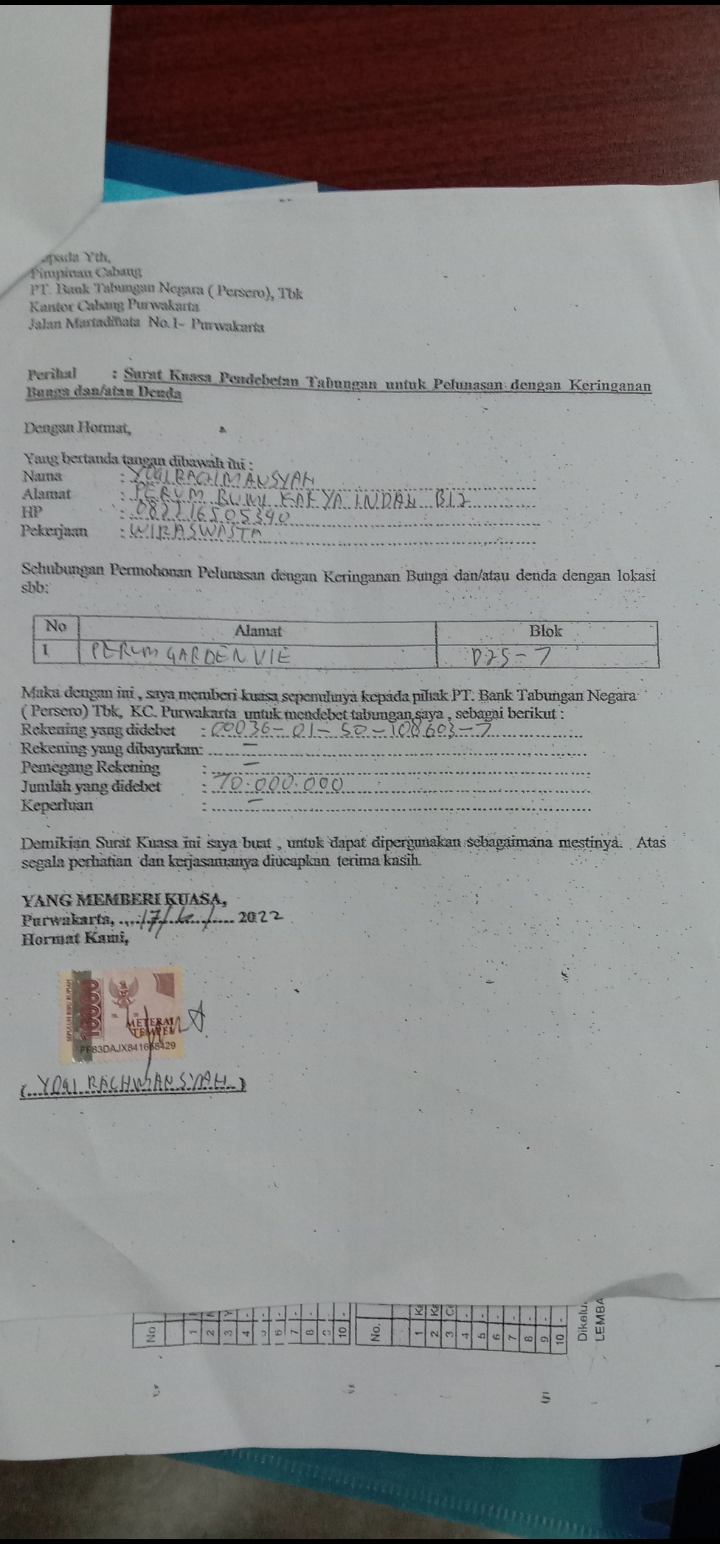 Yth,
Pimpinan Cabang
PT. Bank Tabungan Negara ( Persero), Tbk
Kantor Cabang Purwakarta
Jalan Martadinata No.1- Purwakarta
Perihal : Surat Kuasa Pendebetan Tabungan untuk Pelunasan dengan Keringanan
Bunga dan/atau Denda
Dengan Hormat,
Yang bertanda tangan dibawah ini :
Nama : YOGI RACHMANSYAH
Alamat : PERUM BUMI KARYA INDAH B12
HP : 082216505340
Pekerjaan : WIRASWASTA
Sehubungan Permohonan Pelunasan dengan Keringanan Bunga dan/atau denda dengan lokasi
sbb:
No Alamat Blok
1 PERUM GARDEN VIE D25-7
Maka dengan ini , saya memberi kuasa sepenuhnya kepada pihak PT. Bank Tabungan Negara
( Persero) Tbk, KC. Purwakarta untuk mendebet tabungan saya , sebagai berikut :
Rekening yang didebet : 00036-01-50-108603-7
Rekening yang dibayarkan: -
Pemegang Rekening : -
Jumlah yang didebet : 70.000.000
Keperluan : -
Demikian Surat Kuasa ini saya buat , untuk dapat dipergunakan sebagaimana mestinya. Atas
segala perhatian dan kerjasamanya diucapkan terima kasih.
YANG MEMBERI KUASA,
Purwakarta, 17/ 2022
Hormat Kami,
10000
METERAI
TEMPEL
(YOGI RACHMANSYAH)
No.
1
2
3
4
6
7
8
10
No.
1
2
3
4
5
6
7
8
9
10